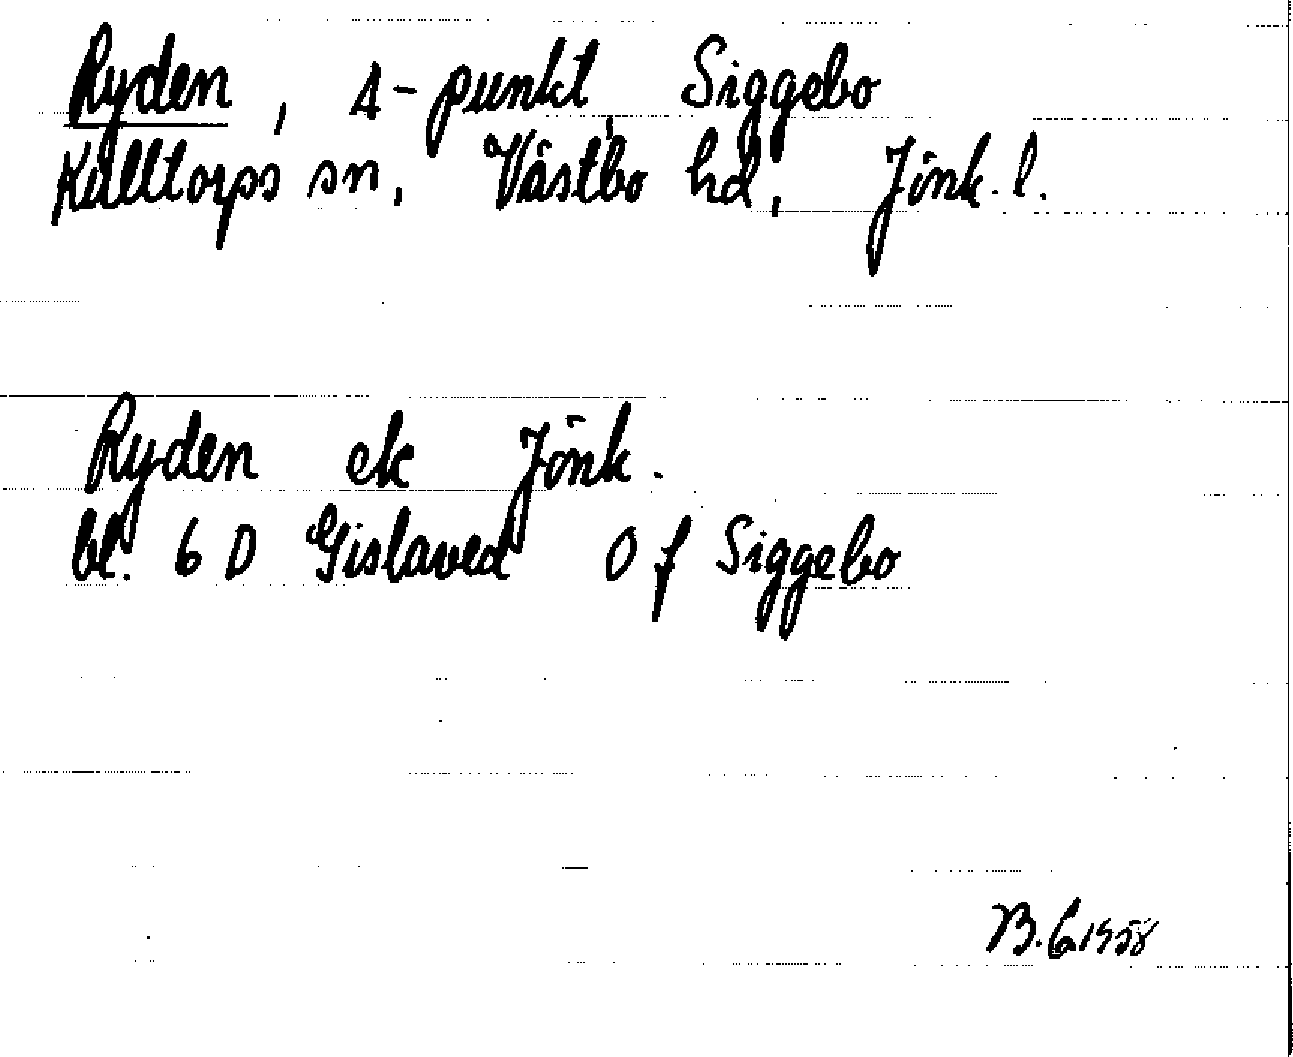 Ryden, Δ-punkt, Siggebo
Kulltorps sn, Västbo hd, Jönk. l.
Ryden ek Jönk.
bl. 6 D Gislaved O f Siggebo
1958